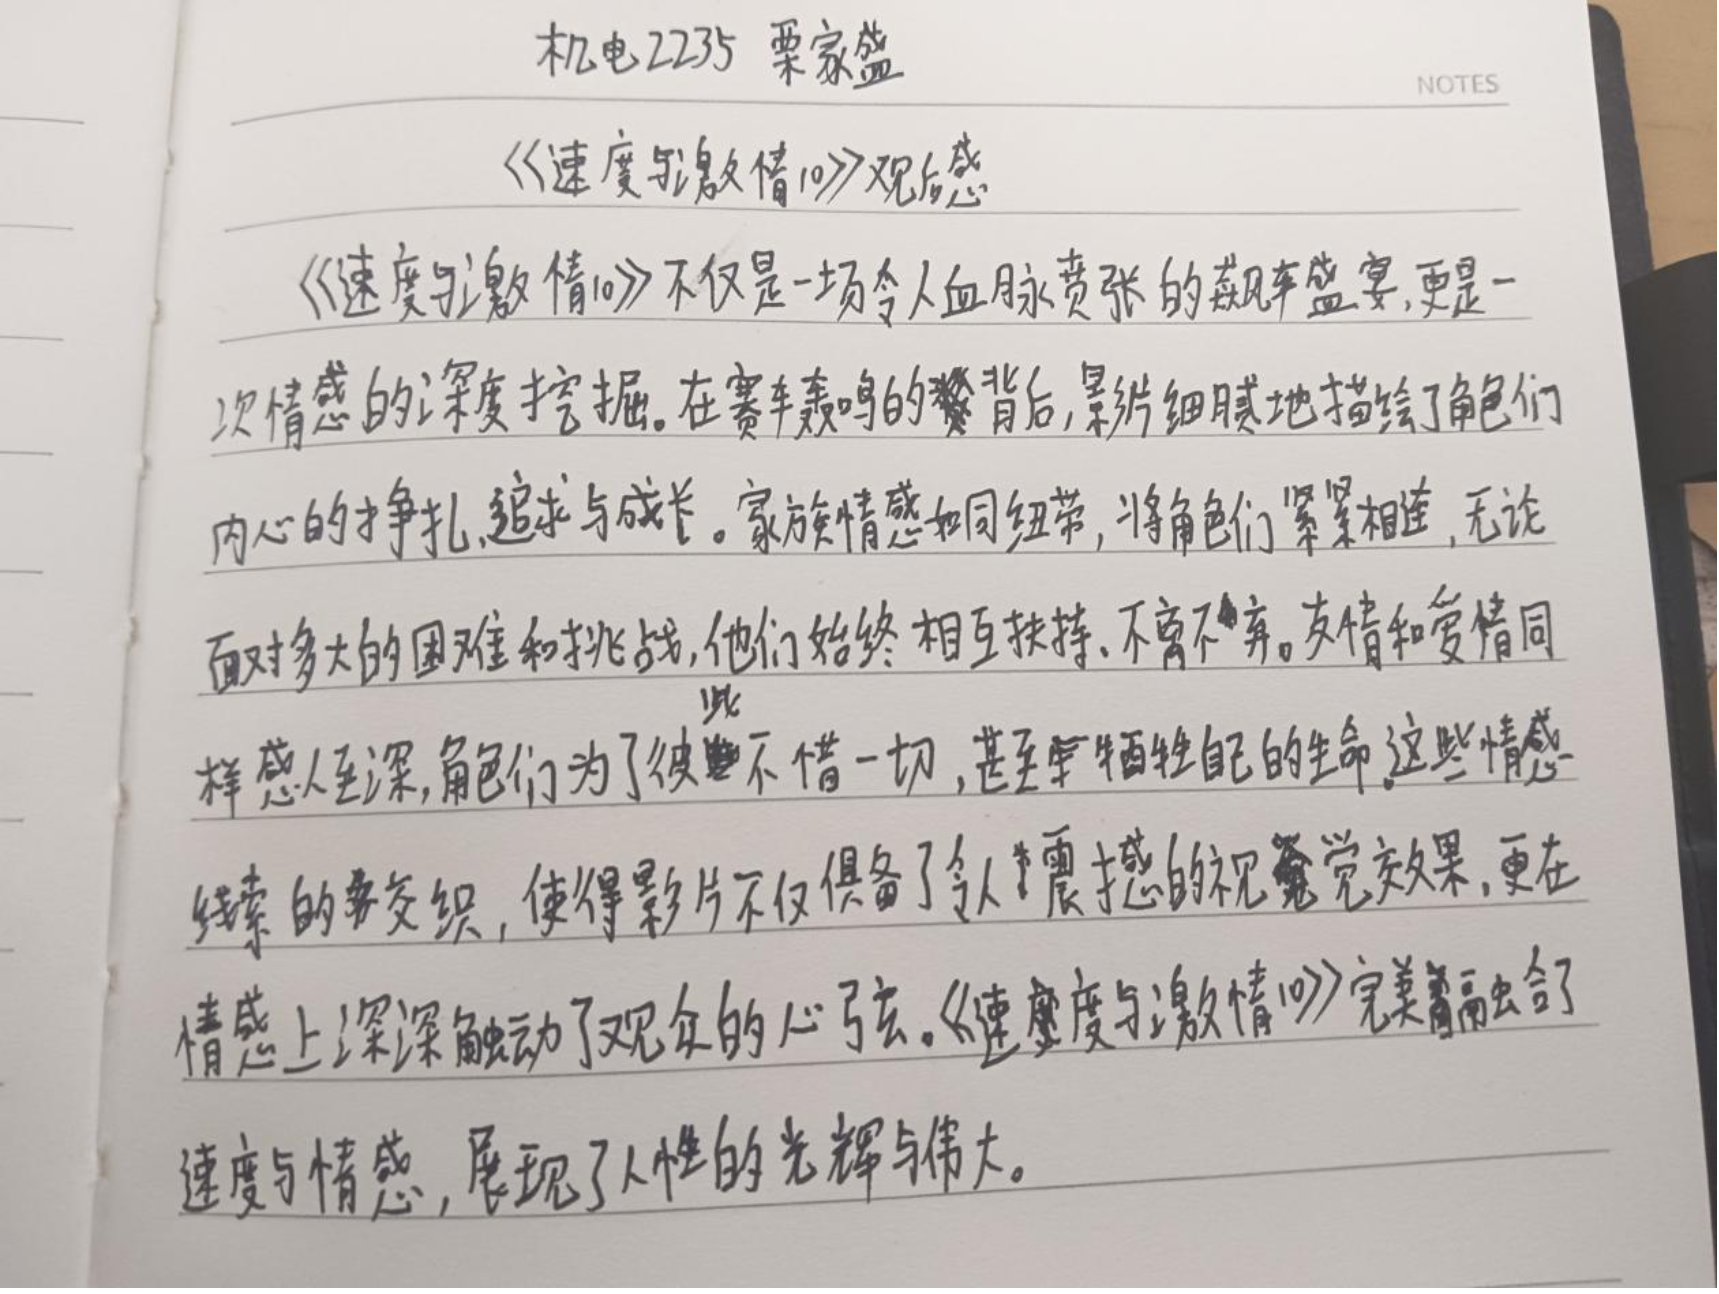 机电2235 栗家盛
NOTES
《速度与激情10》观后感
《速度与激情10》不仅是一场令人血脉贲张的飙车盛宴,更是一
次情感的深度挖掘。在赛车轰鸣的背后,影片细腻地描绘了角色们
内心的挣扎、追求与成长。家族情感如同纽带,将角色们紧紧相连,无论
面对多大的困难和挑战,他们始终相互扶持、不离不弃。友情和爱情同
样感人至深,角色们为了彼些不惜一切,甚至牺牲自己的生命。这些情感
线索的交织,使得影片不仅俱备了令人震撼的视觉效果,更在
情感上深深触动了观众的心弦。《速度与激情10》完美融合了
速度与情感,展现了人性的光辉与伟大。